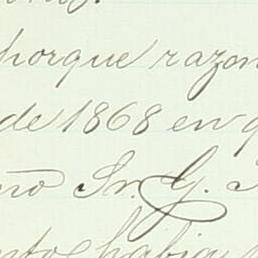 porque razon
de 1868 en q
Sr. G.
habia